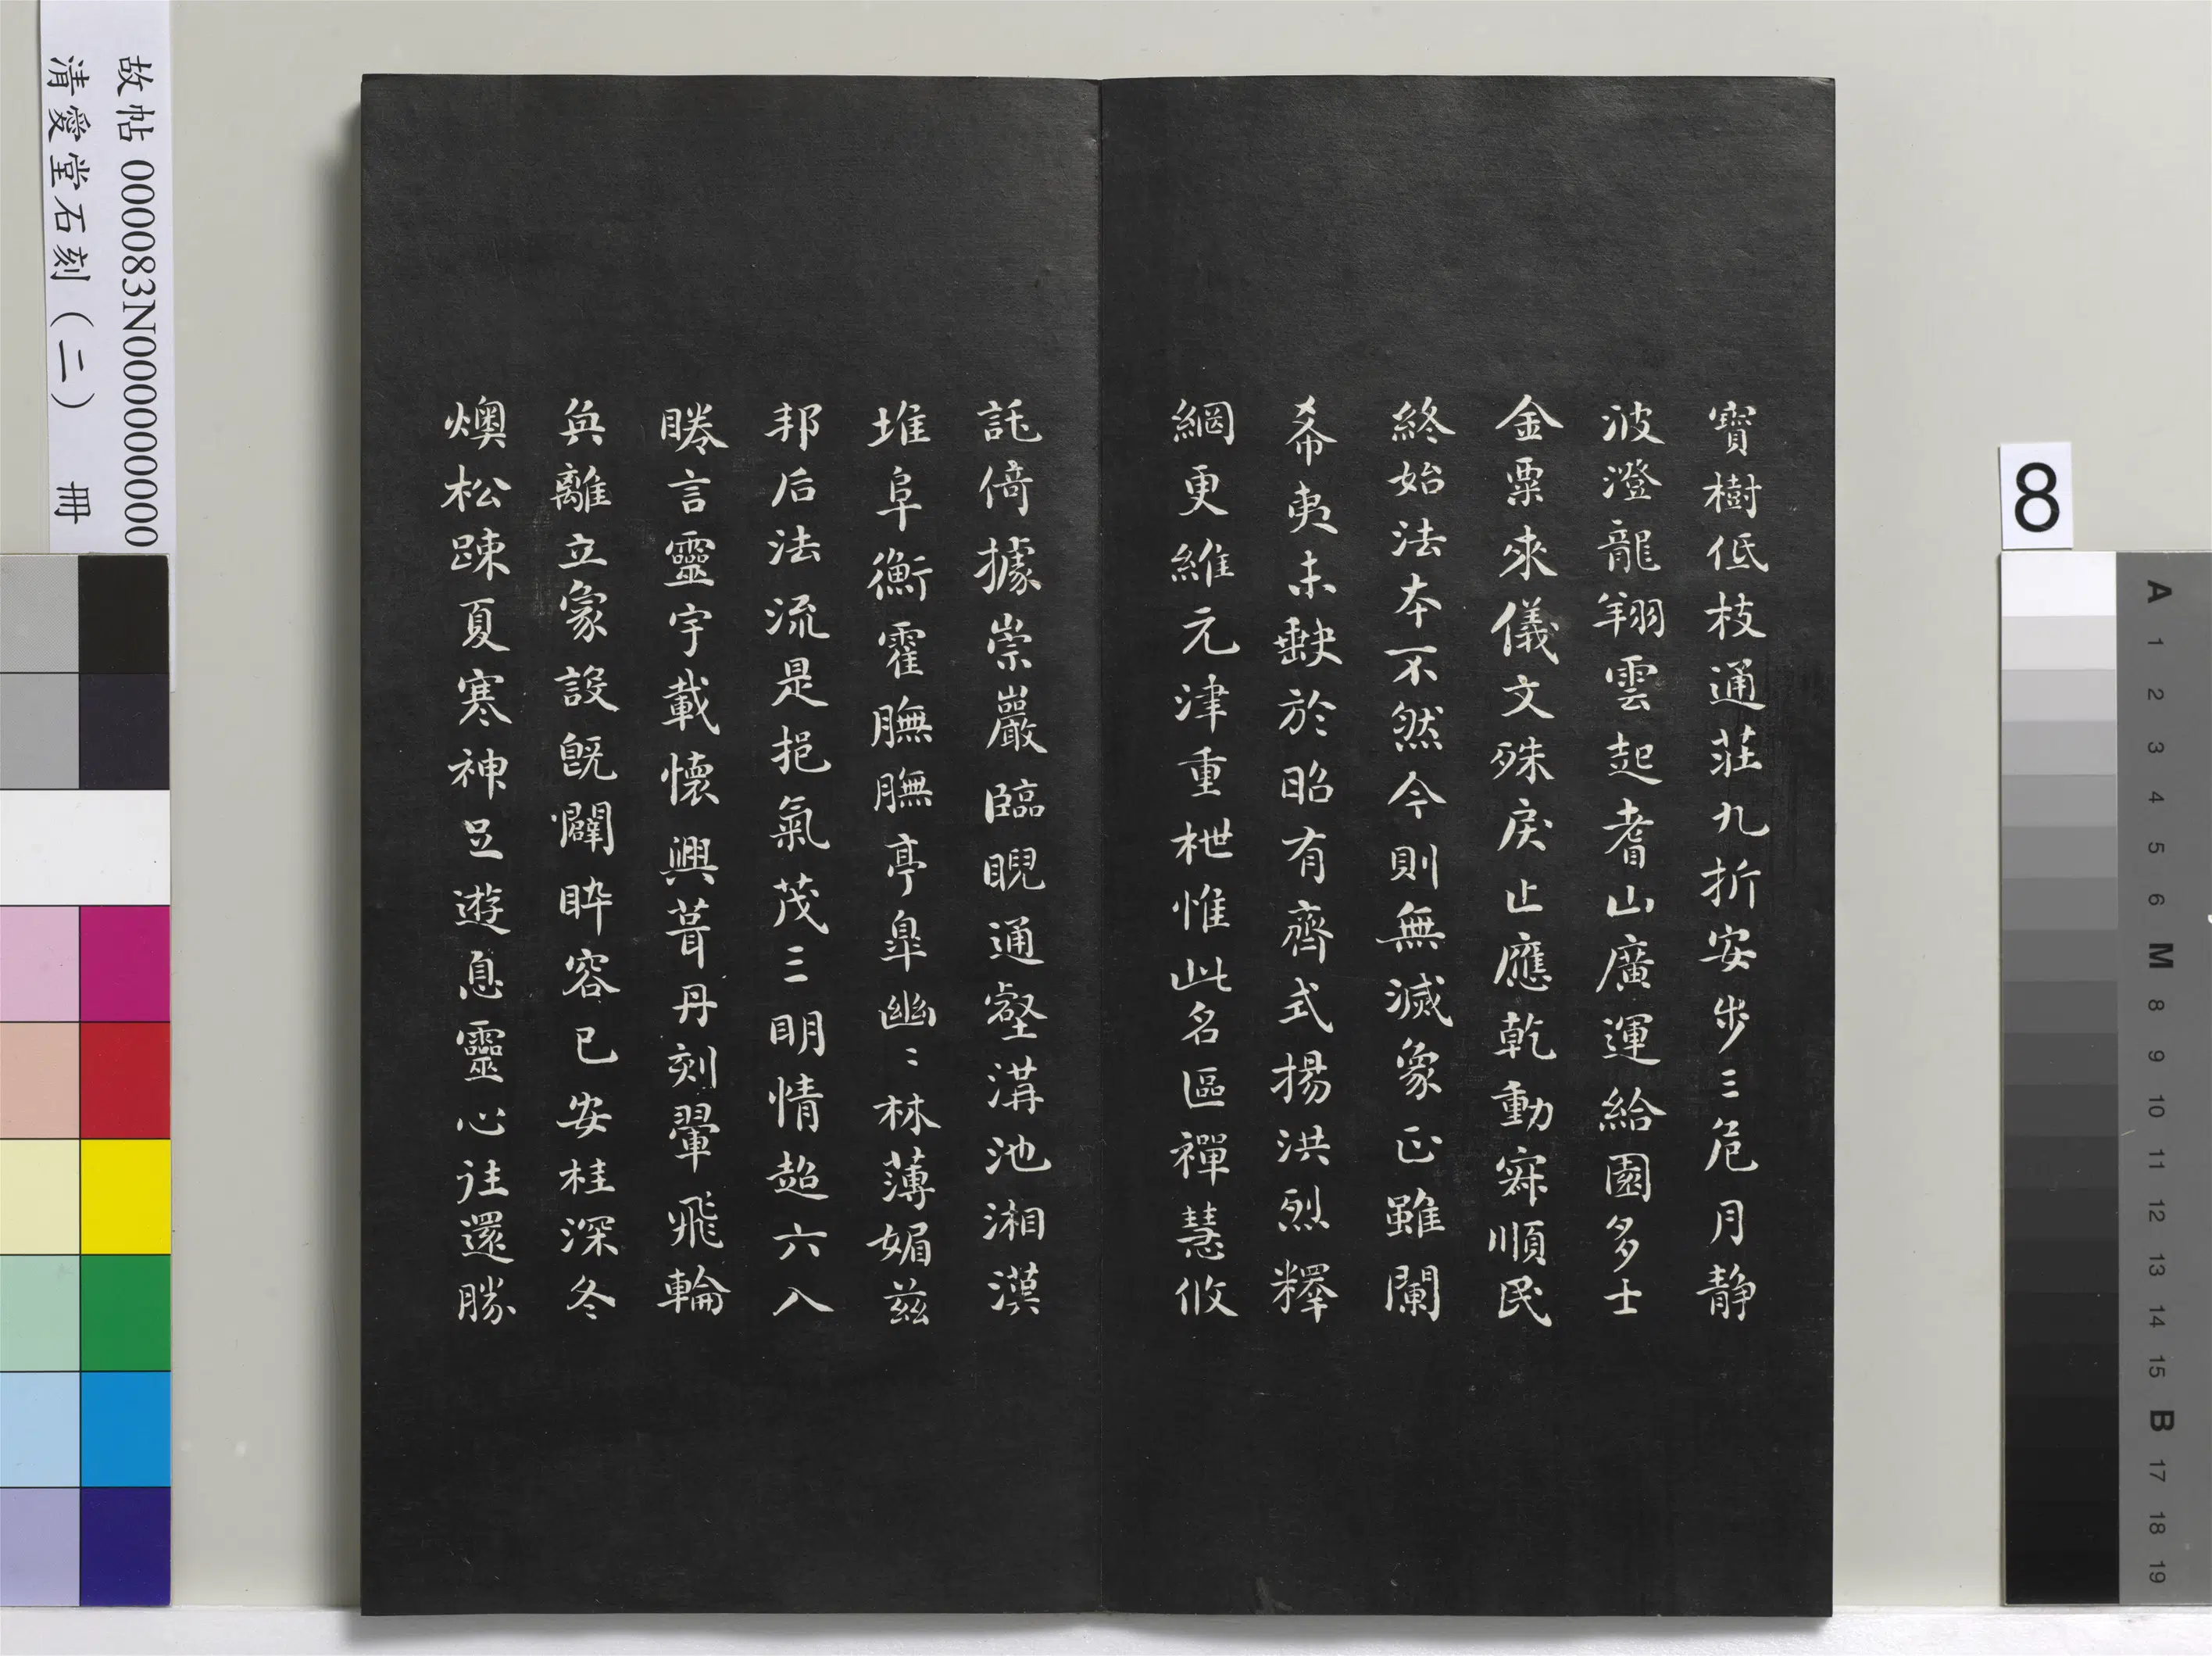 寶樹低枝通莊九折安步三危月靜
波澄龍翔雲起耆山廣運給園多士
金粟來儀文殊戾止應乾動寂順民
終始法本不然今則無滅象正雖闌
希夷未缺於昭有齊式揚洪烈釋
網更維元津重枻惟此名區禪慧攸
託倚據崇巖臨睨通壑溝池湘漢
堆阜衡霍膴膴亭皋幽〻林薄媚茲
邦后法流是挹氣茂三明情超六入
眷言靈宇載懷興葺丹刻翬飛輪
奐離立象設既闢睟容已安桂深冬
燠松踈夏寒神足遊息靈心往還勝
故帖 000083N000000000
清愛堂石刻（二） 冊
8
A 1 2 3 4 5 6 M 8 9 10 11 12 13 14 15 B 17 18 19